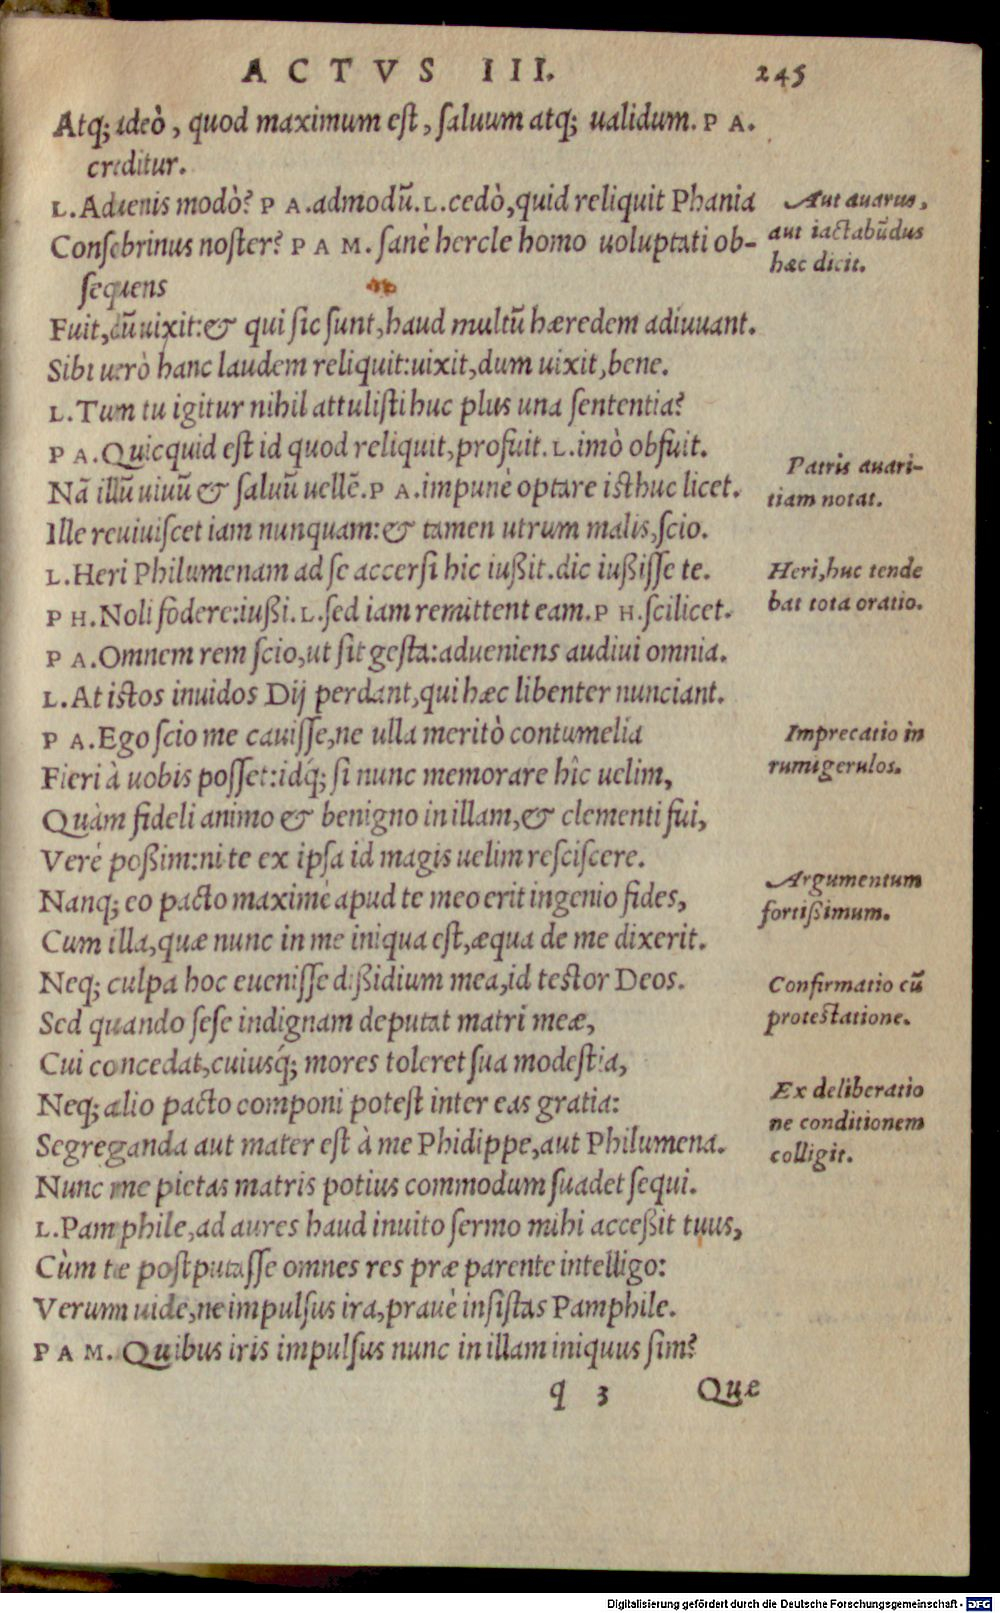 ACTVS III. 245
Atq; adeò, quod maximum est, saluum atq; ualidum. PA.
creditur.
L. Aduenis modò? PA. admodū. L. cedò, quid reliquit Phania
Consobrinus noster? PAM. sanè hercle homo uoluptati ob-
sequens
Fuit, dū uixit: & qui sic sunt, haud multū hæredem adiuuant.
Sibi uerò hanc laudem reliquit: uixit, dum uixit, bene.
L. Tum tu igitur nihil attulisti huc plus una sententia?
PA. Quicquid est id quod reliquit, profuit. L. imò obfuit.
Nā illū uiuū & saluū uellē. PA. impunè optare isthuc licet.
Ille reuiuiscet iam nunquam: & tamen utrum malis, scio.
L. Heri Philumenam ad se accersi hic iußit. dic iußisse te.
PH. Noli fodere: iußi. L. sed iam remittent eam. PH. scilicet.
PA. Omnem rem scio, ut sit gesta: adueniens audiui omnia.
L. At istos inuidos Dij perdant, qui hæc libenter nunciant.
PA. Ego scio me cauisse, ne ulla meritò contumelia
Fieri à uobis posset: idq́; si nunc memorare hîc uelim,
Quàm fideli animo & benigno in illam, & clementi fui,
Verè poßim: ni te ex ipsa id magis uelim resciscere.
Nanq; eo pacto maximè apud te meo erit ingenio fides,
Cum illa, quæ nunc in me iniqua est, æqua de me dixerit.
Neq; culpa hoc euenisse dißidium mea, id testor Deos.
Sed quando sese indignam deputat matri meæ,
Cui concedat, cuiusq́; mores toleret sua modestia,
Neq; alio pacto componi potest inter eas gratia:
Segreganda aut mater est à me Phidippe, aut Philumena.
Nunc me pietas matris potius commodum suadet sequi.
L. Pamphile, ad aures haud inuito sermo mihi acceßit tuus,
Cùm te postputasse omnes res præ parente intelligo:
Verum uide, ne impulsus ira, prauè insistas Pamphile.
PAM. Quibus iris impulsus nunc in illam iniquus sim?
q 3 Que
Aut auarus,
aut iactabūdus
hæc dicit.
Patris auari-
tiam notat.
Heri, huc tende
bat tota oratio.
Imprecatio in
rumigerulos.
Argumentum
fortißimum.
Confirmatio cū
protestatione.
Ex deliberatio
ne conditionem
colligit.
Digitalisierung gefördert durch die Deutsche Forschungsgemeinschaft - DFG